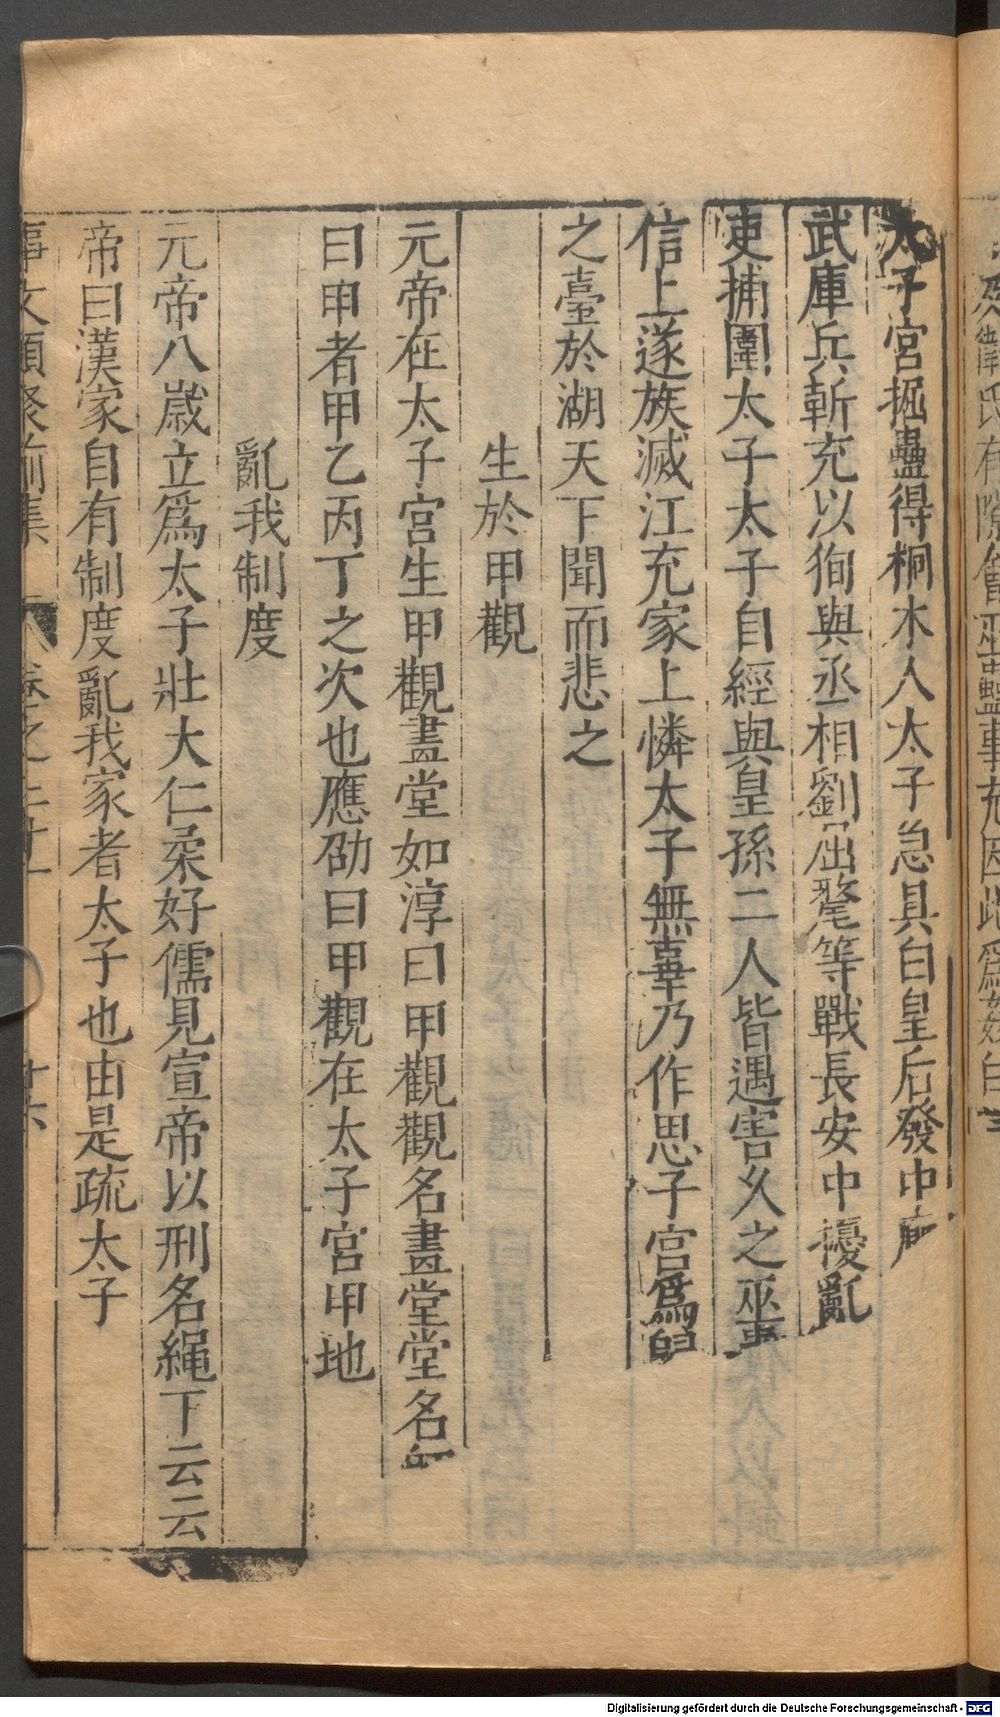 太子宮掘蠱得桐木人太子急具白皇后發中
武庫兵斬充以徇與丞相劉屈氂等戰長安中擾亂
吏捕圍太子太子自經與皇孫二人皆遇害久之巫
信上遂族滅江充家上憐太子無辜乃作思子宮爲
之臺於湖天下聞而悲之
生於甲觀
元帝在太子宮生甲觀畫堂如淳曰甲觀觀名畫堂堂名
曰甲者甲乙丙丁之次也應劭曰甲觀在太子宮甲地
亂我制度
元帝八歲立爲太子壯大仁柔好儒見宣帝以刑名繩下云云
帝曰漢家自有制度亂我家者太子也由是疏太子
事文類聚前集 卷之二十一 十六
Digitalisierung gefördert durch die Deutsche Forschungsgemeinschaft - DFG